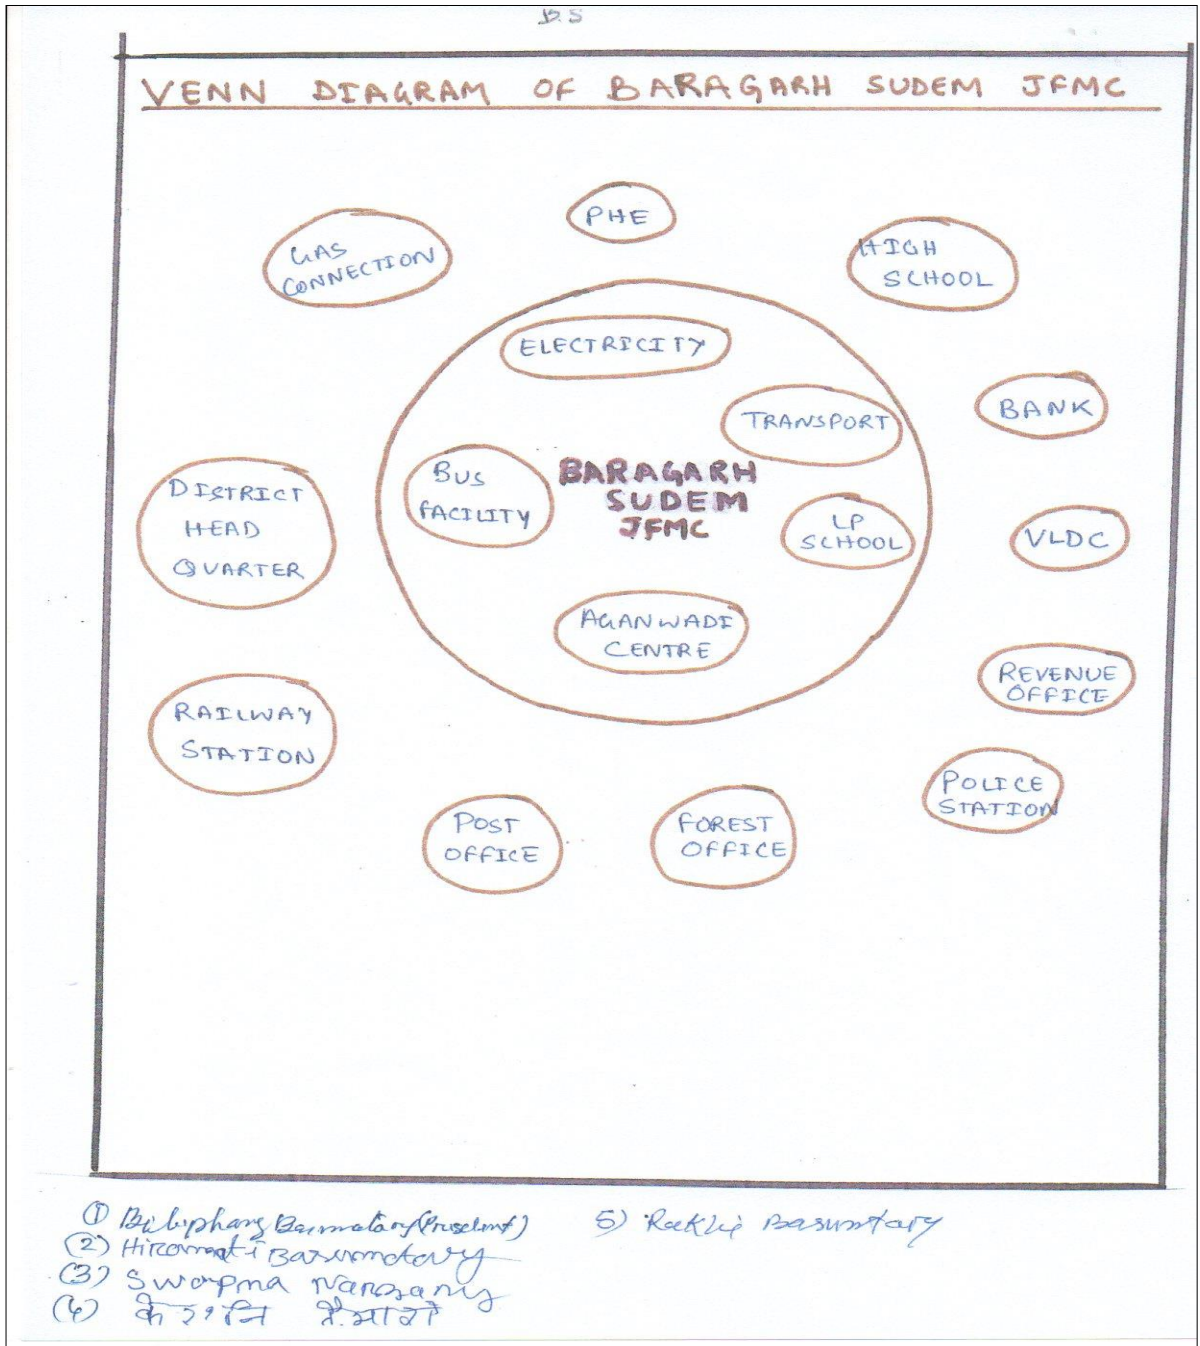 B.S
VENN DIAGRAM OF BARAGARH SUDEM JFMC
PHE
GAS
CONNECTION
HIGH
SCHOOL
ELECTRICITY
TRANSPORT
BANK
BUS
FACILITY
BARAGARH
SUDEM
JFMC
LP
SCHOOL
DISTRICT
HEAD
QUARTER
VLDC
AGANWADI
CENTRE
REVENUE
OFFICE
RAILWAY
STATION
POLICE
STATION
POST
OFFICE
FOREST
OFFICE
(1) (President)
(2) Basumatary
(3) Swapna Narzary
(4)
5) Basumatary